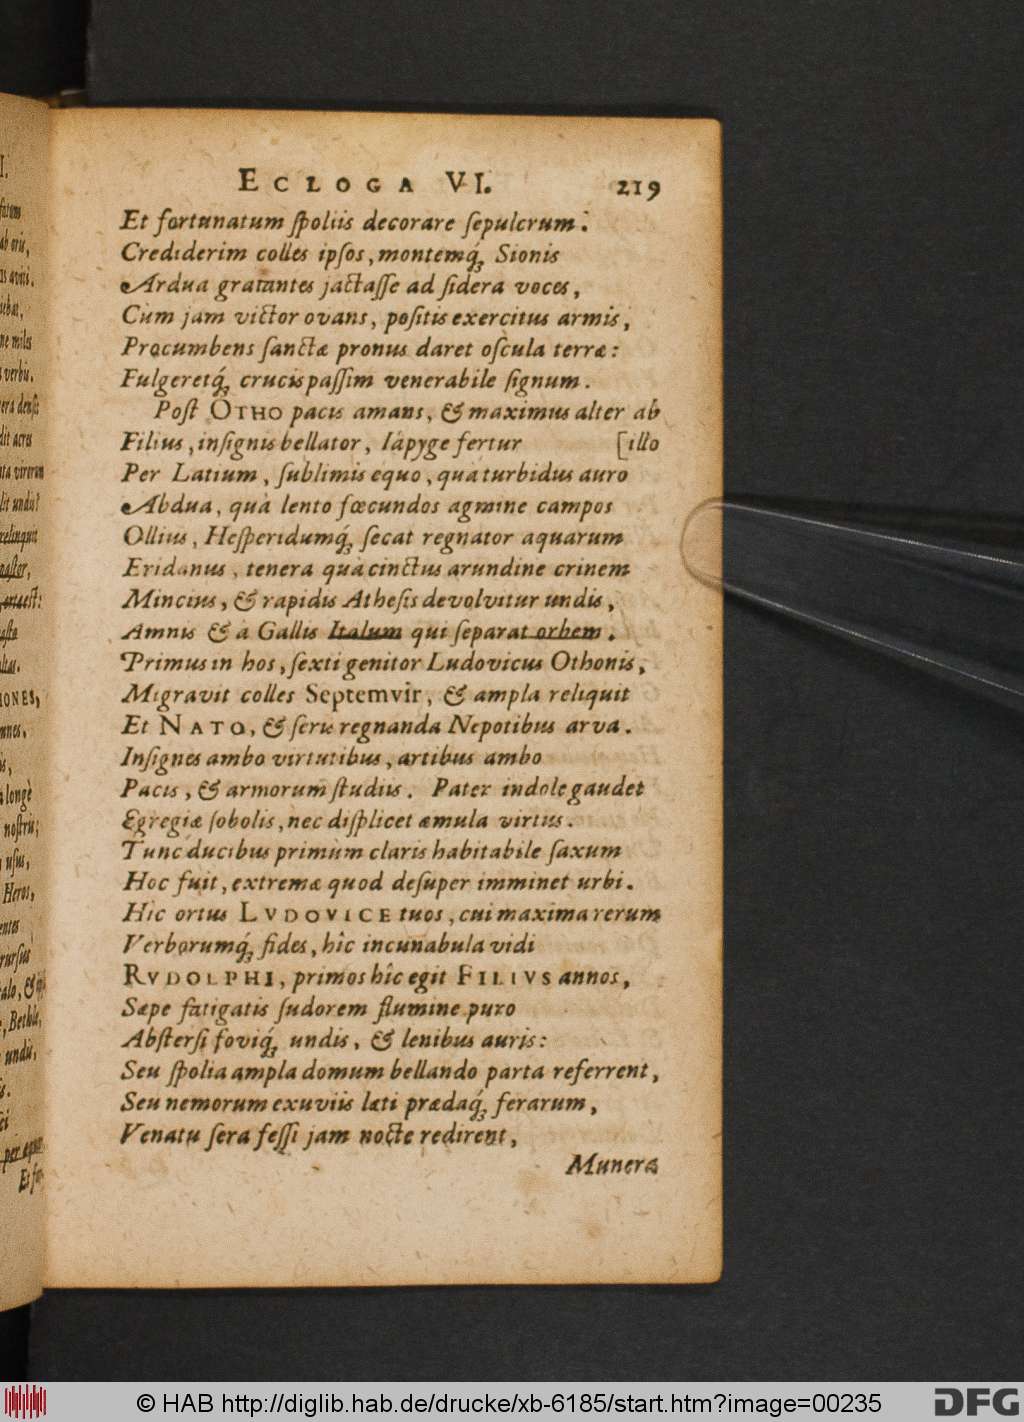 ECLOGA VI. 219
Et fortunatum ſpoliis decorare ſepulcrum.
Crediderim colles ipſos, montemq́ꝫ Sionis
Ardua gratantes jactaſſe ad ſidera voces,
Cùm jam victor ovans, poſitis exercitus armis,
Procumbens ſanctæ pronus daret oſcula terræ:
Fulgeretq́ꝫ crucis paſſim venerabile ſignum.
Poſt OTHO pacis amans, & maximus alter ab
Filius, inſignis bellator, Iapyge fertur [illo
Per Latium, ſublimis equo, quà turbidus auro
Abdua, quà lento fœcundos agmine campos
Ollius, Heſperidumq́ꝫ ſecat regnator aquarum
Eridanus, tenera quà cinctus arundine crinem
Mincius, & rapidis Atheſis devolvitur undis,
Amnis & à Gallis Italum qui ſeparat orbem.
Primus in hos, ſexti genitor Ludovicus Othonis,
Migravit colles Septemvîr, & ampla reliquit
Et NATO, & ſeris regnanda Nepotibus arva.
Inſignes ambo virtutibus, artibus ambo
Pacis, & armorum ſtudiis. Pater indole gaudet
Egregiæ ſobolis, nec diſplicet æmula virtus.
Tunc ducibus primùm claris habitabile ſaxum
Hoc fuit, extremæ quod deſuper imminet urbi.
Hic ortus LVDOVICE tuos, cui maxima rerum
Verborumq́ꝫ fides, hîc incunabula vidi
RVDOLPHI, primos hîc egit FILIVS annos,
Sæpe fatigatis ſudorem flumine puro
Abſterſi foviq́ꝫ undis, & lenibus auris:
Seu ſpolia ampla domum bellando parta referrent,
Seu nemorum exuviis læti prædaq́ꝫ ferarum,
Venatu ſera feſſi jam nocte redirent,
Munera
© HAB http://diglib.hab.de/drucke/xb-6185/start.htm?image=00235
DFG